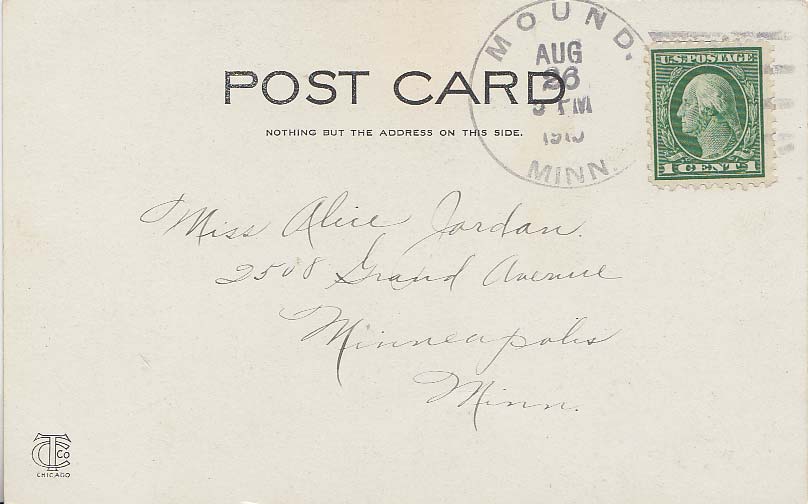 MOUND.
AUG
26
5 PM
MINN.
U.S. POSTAGE
1 CENT 1
POST CARD
NOTHING BUT THE ADDRESS ON THIS SIDE.
Miss Alice Jordan.
2508 Grand Avenue
Minneapolis
Minn.
CTCo
CHICAGO